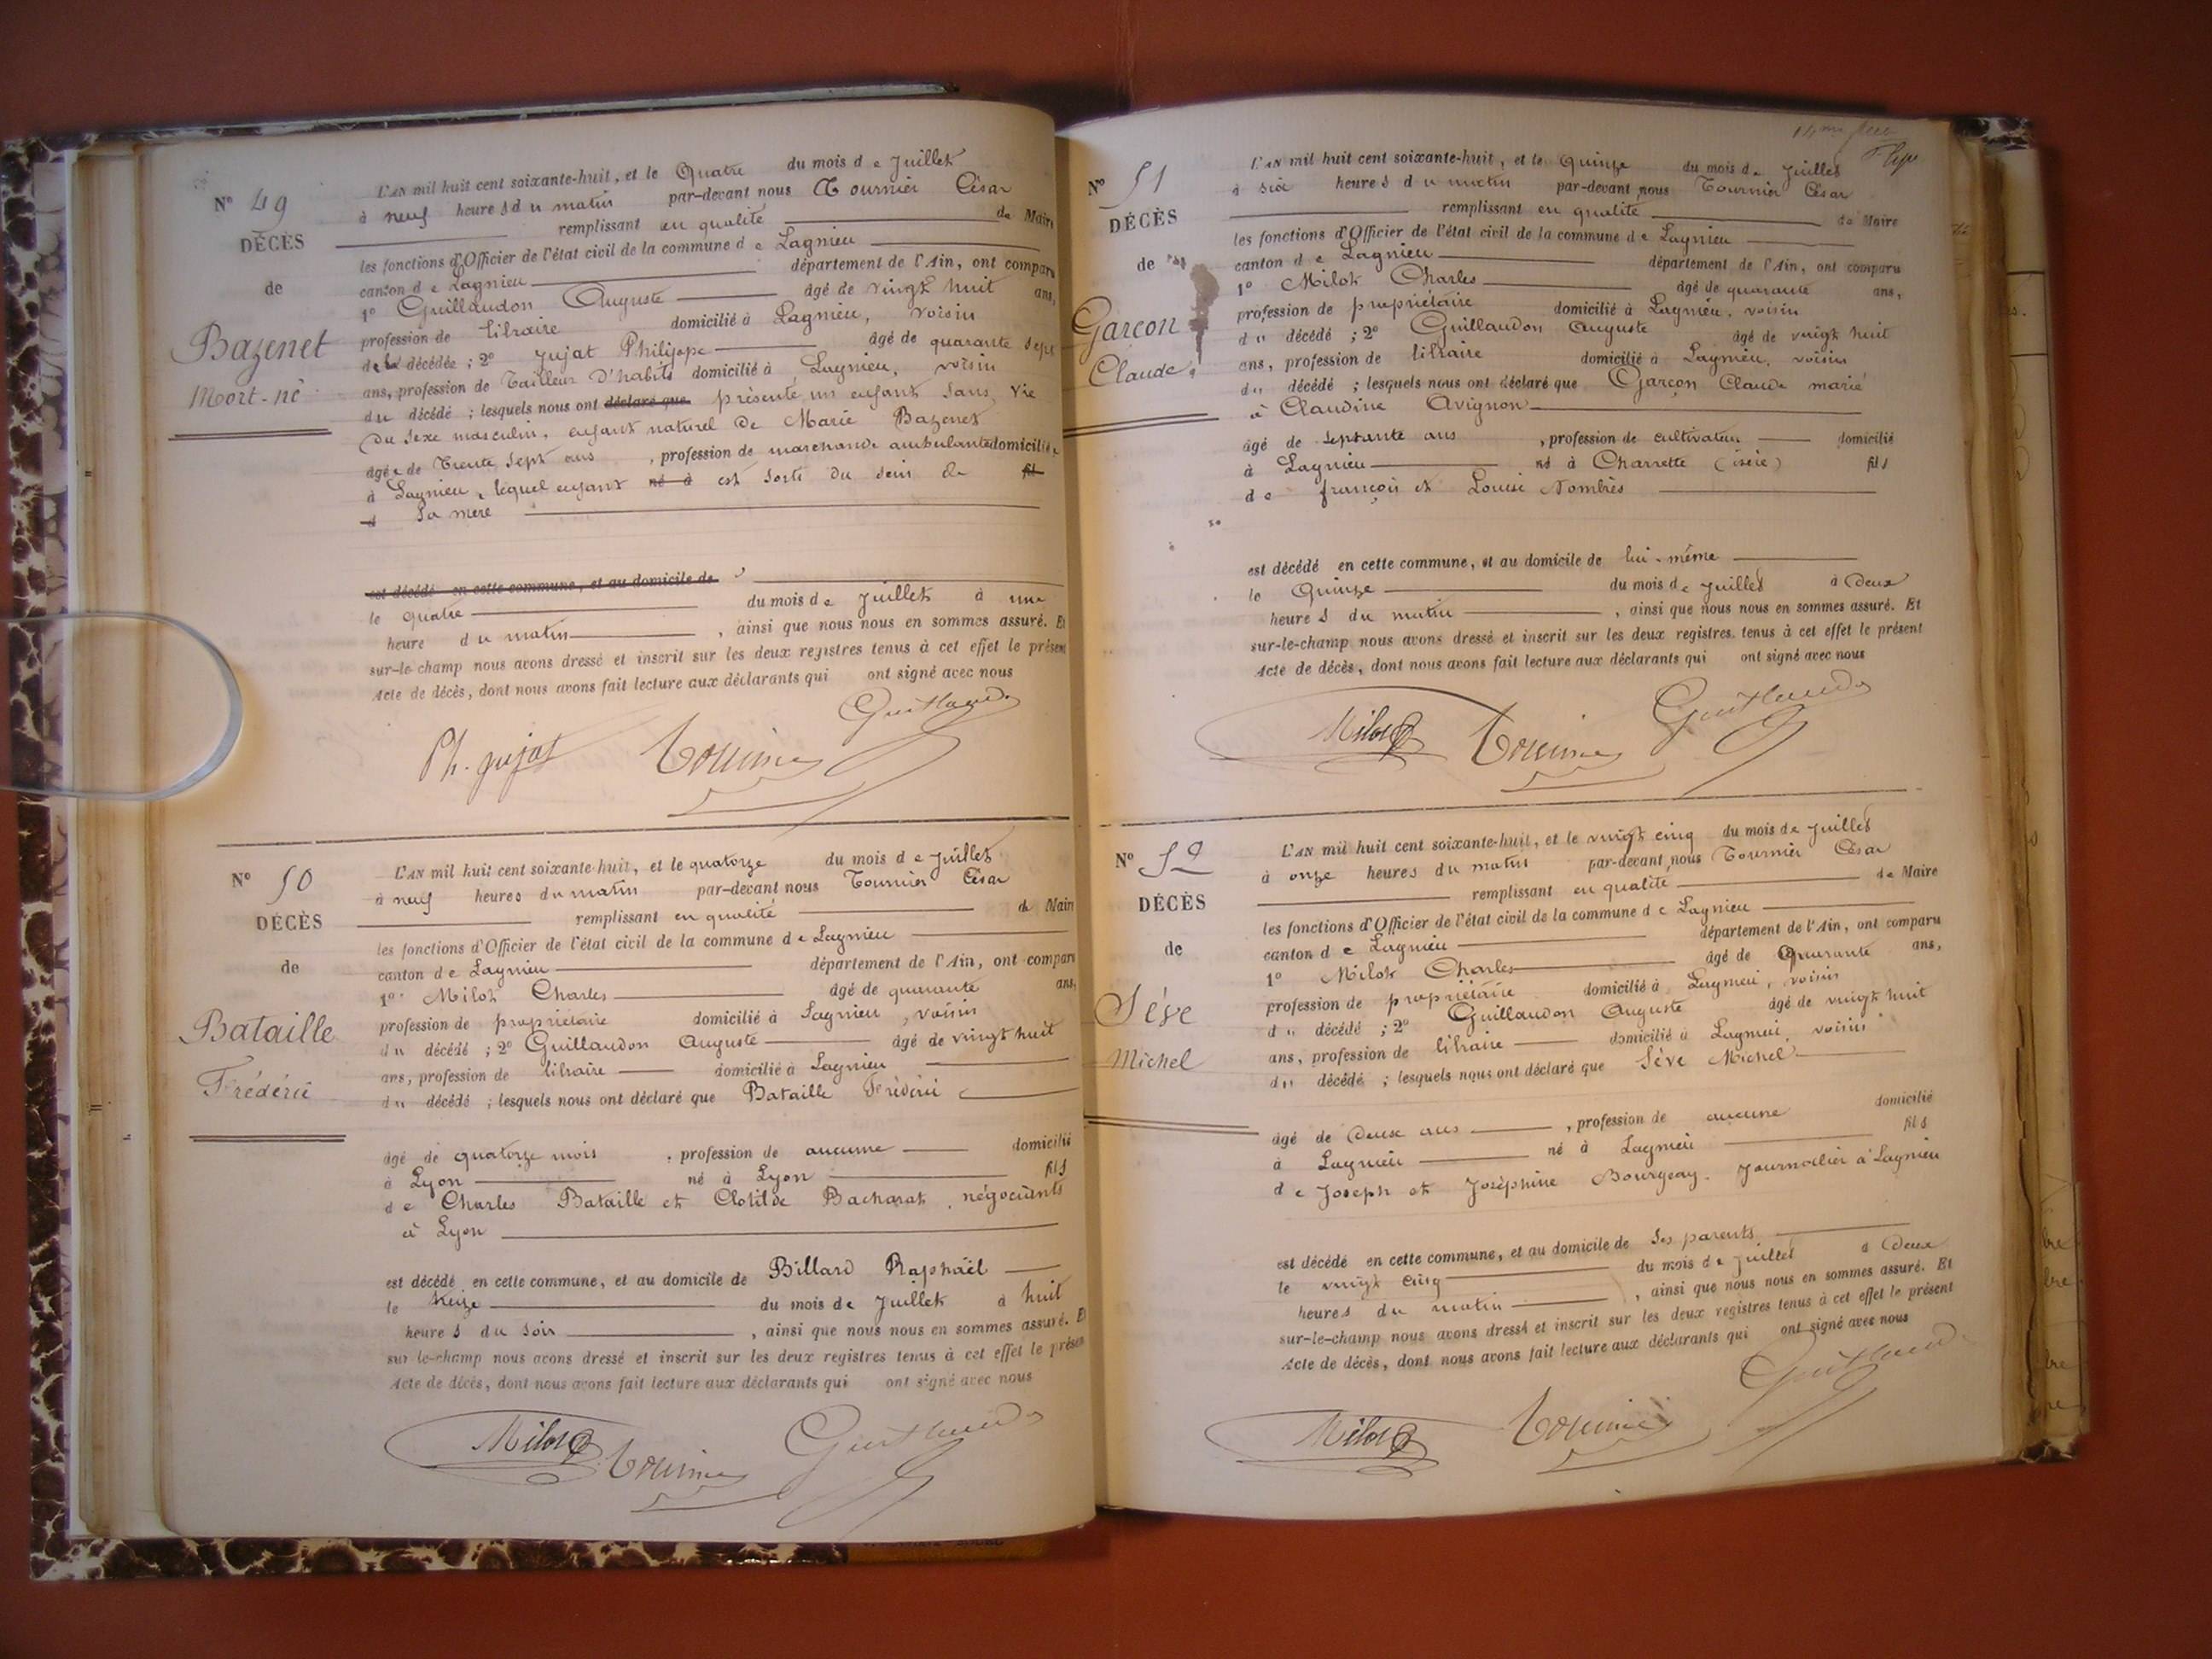 N° 49
DÉCÈS
de
Bazenet
Mort-né
L'AN mil huit cent soixante-huit, et le Quatre du mois de Juillet
à neuf heures du matin par-devant nous Tournier César
remplissant en qualité de Maire
les fonctions d'Officier de l'état civil de la commune de Lagnieu
canton de Lagnieu département de l'Ain, ont comparu
1° Guillaudon Auguste âgé de vingt huit ans,
profession de libraire domicilié à Lagnieu, voisin
de la décédée ; 2° Jujat Philippe âgé de quarante sept
ans, profession de Tailleur d'habits domicilié à Lagnieu, voisin
du décédé ; lesquels nous ont déclaré que présenté un enfant sans vie
du sexe masculin, enfant naturel de Marie Bazenet
âgée de Trente sept ans, profession de marchande ambulante domiciliée
à Lagnieu, lequel enfant né à est sorti du sein de fil
d sa mère
est décédé en cette commune, et au domicile de
le quatre du mois de Juillet à une
heure du matin, ainsi que nous nous en sommes assuré. Et
sur-le-champ nous avons dressé et inscrit sur les deux registres tenus à cet effet le présent
Acte de décès, dont nous avons fait lecture aux déclarants qui ont signé avec nous
Guillaudon
Ph. Jujat Tournier
N° 50
DÉCÈS
de
Bataille
Frédéric
L'AN mil huit cent soixante-huit, et le quatorze du mois de Juillet
à neuf heures du matin par-devant nous Tournier César
remplissant en qualité de Maire
les fonctions d'Officier de l'état civil de la commune de Lagnieu
canton de Lagnieu département de l'Ain, ont comparu
1° Milot Charles âgé de quarante ans,
profession de propriétaire domicilié à Lagnieu, voisin
du décédé ; 2° Guillaudon Auguste âgé de vingt huit
ans, profession de libraire domicilié à Lagnieu
du décédé ; lesquels nous ont déclaré que Bataille Frédéric
âgé de quatorze mois, profession de aucune domicilié
à Lyon né à Lyon fils
de Charles Bataille et Clotilde Bacharat, négociants
à Lyon
est décédé en cette commune, et au domicile de Billard Raphaël
le treize du mois de Juillet à huit
heures du soir, ainsi que nous nous en sommes assuré. Et
sur-le-champ nous avons dressé et inscrit sur les deux registres tenus à cet effet le présent
Acte de décès, dont nous avons fait lecture aux déclarants qui ont signé avec nous
Milot Tournier Guillaudon
N° 51
DÉCÈS
de
Garçon
Claude
L'AN mil huit cent soixante-huit, et le quinze du mois de Juillet
à six heures du matin par-devant nous Tournier César
remplissant en qualité de Maire
les fonctions d'Officier de l'état civil de la commune de Lagnieu
canton de Lagnieu département de l'Ain, ont comparu
1° Milot Charles âgé de quarante ans,
profession de propriétaire domicilié à Lagnieu, voisin
du décédé ; 2° Guillaudon Auguste âgé de vingt huit
ans, profession de libraire domicilié à Lagnieu, voisin
du décédé ; lesquels nous ont déclaré que Garçon Claude marié
à Claudine Avignon
âgé de septante ans, profession de cultivateur domicilié
à Lagnieu né à Charrette (isère) fils
de françois et Louise Nombres
est décédé en cette commune, et au domicile de lui-même
le Quinze du mois de Juillet à Deux
heures du matin, ainsi que nous nous en sommes assuré. Et
sur-le-champ nous avons dressé et inscrit sur les deux registres tenus à cet effet le présent
Acte de décès, dont nous avons fait lecture aux déclarants qui ont signé avec nous
Milot Tournier Guillaudon
N° 52
DÉCÈS
de
Sève
Michel
L'AN mil huit cent soixante-huit, et le vingt cinq du mois de Juillet
à onze heures du matin par-devant nous Tournier César
remplissant en qualité de Maire
les fonctions d'Officier de l'état civil de la commune de Lagnieu
canton de Lagnieu département de l'Ain, ont comparu
1° Milot Charles âgé de Quarante ans,
profession de propriétaire domicilié à Lagnieu, voisin
du décédé ; 2° Guillaudon Auguste âgé de vingt huit
ans, profession de libraire domicilié à Lagnieu voisin
du décédé ; lesquels nous ont déclaré que Sève Michel
âgé de Deux ans, profession de aucune domicilié
à Lagnieu né à Lagnieu fils
de Joseph et Joséphine Bourgeay. Journalier à Lagnieu
est décédé en cette commune, et au domicile de ses parents
le vingt cinq du mois de Juillet à Deux
heures du matin, ainsi que nous nous en sommes assuré. Et
sur-le-champ nous avons dressé et inscrit sur les deux registres tenus à cet effet le présent
Acte de décès, dont nous avons fait lecture aux déclarants qui ont signé avec nous
Milot Tournier Guillaudon